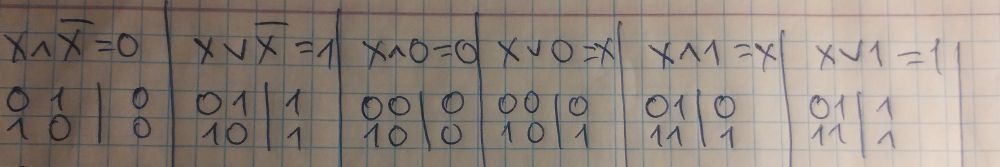 x∧x̅=0 | x∨x̅=1 | x∧0=0 | x∨0=x | x∧1=x | x∨1=1 |
0 1 | 0 | 0 1 | 1 | 0 0 | 0 | 0 0 | 0 | 0 1 | 0 | 0 1 | 1
1 0 | 0 | 1 0 | 1 | 1 0 | 0 | 1 0 | 1 | 1 1 | 1 | 1 1 | 1